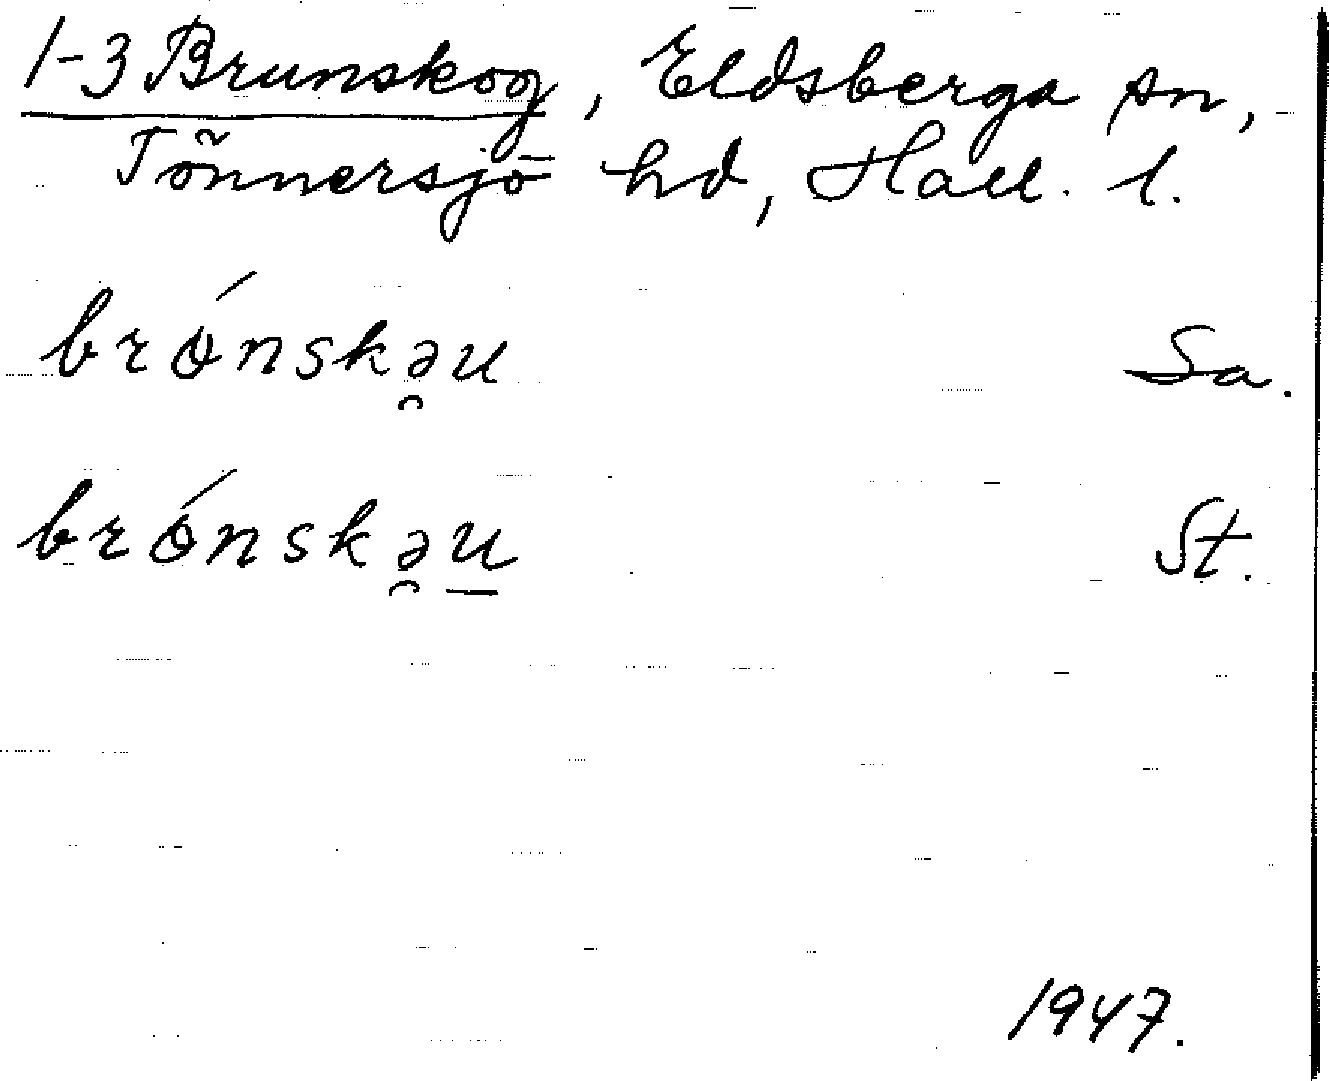 1-3 Brunskog, Eldsberga sn,
Tönnersjö hd, Hall. l.
brónskə̯u Sa.
brónskə̯u St.
1947.